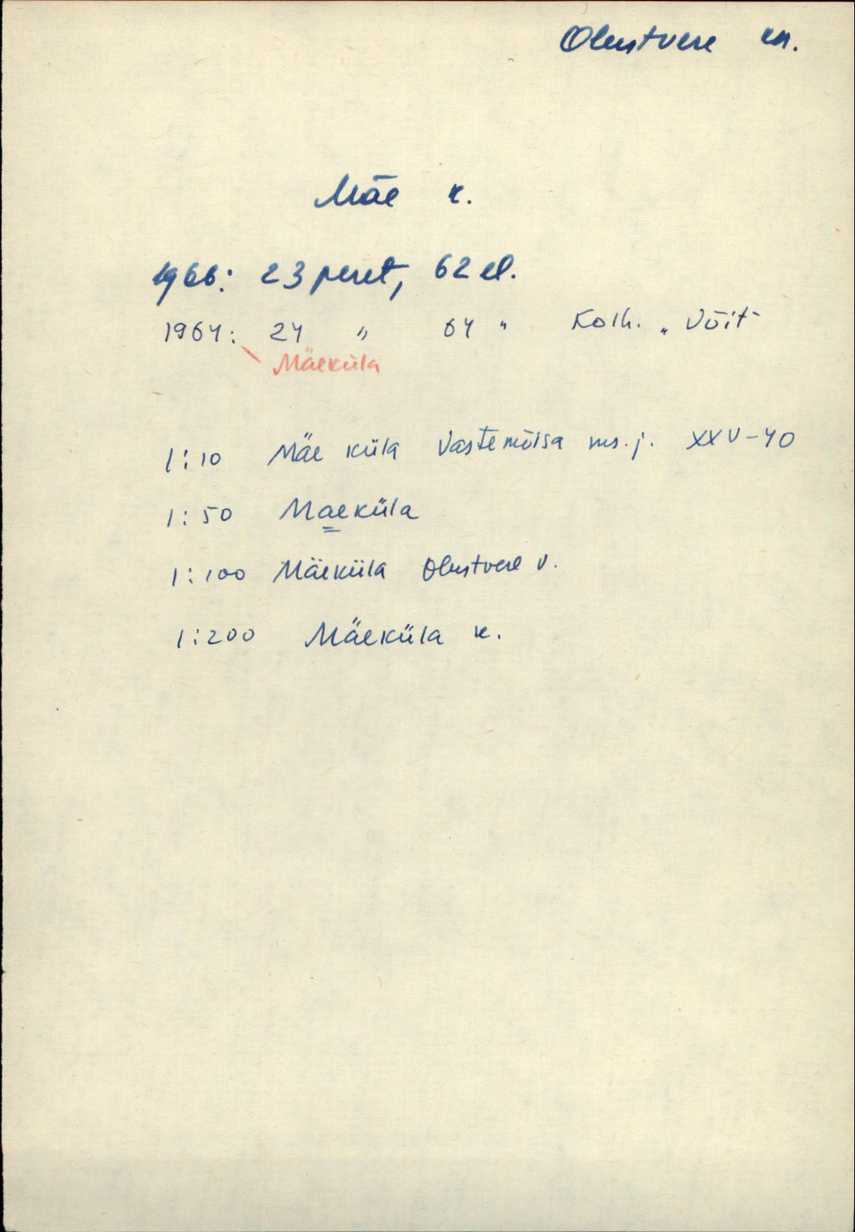 Olustvere kn.
Mäe k.
1966: 23 peret, 62 el.
1964: 24 " 64 " Kolh. „Võit"
Mäeküla
1:10 Mäe küla Vastemõisa ms. j. XXV-40
1:50 Maeküla
1:100 Mäeküla Olustvere v.
1:200 Mäeküla k.